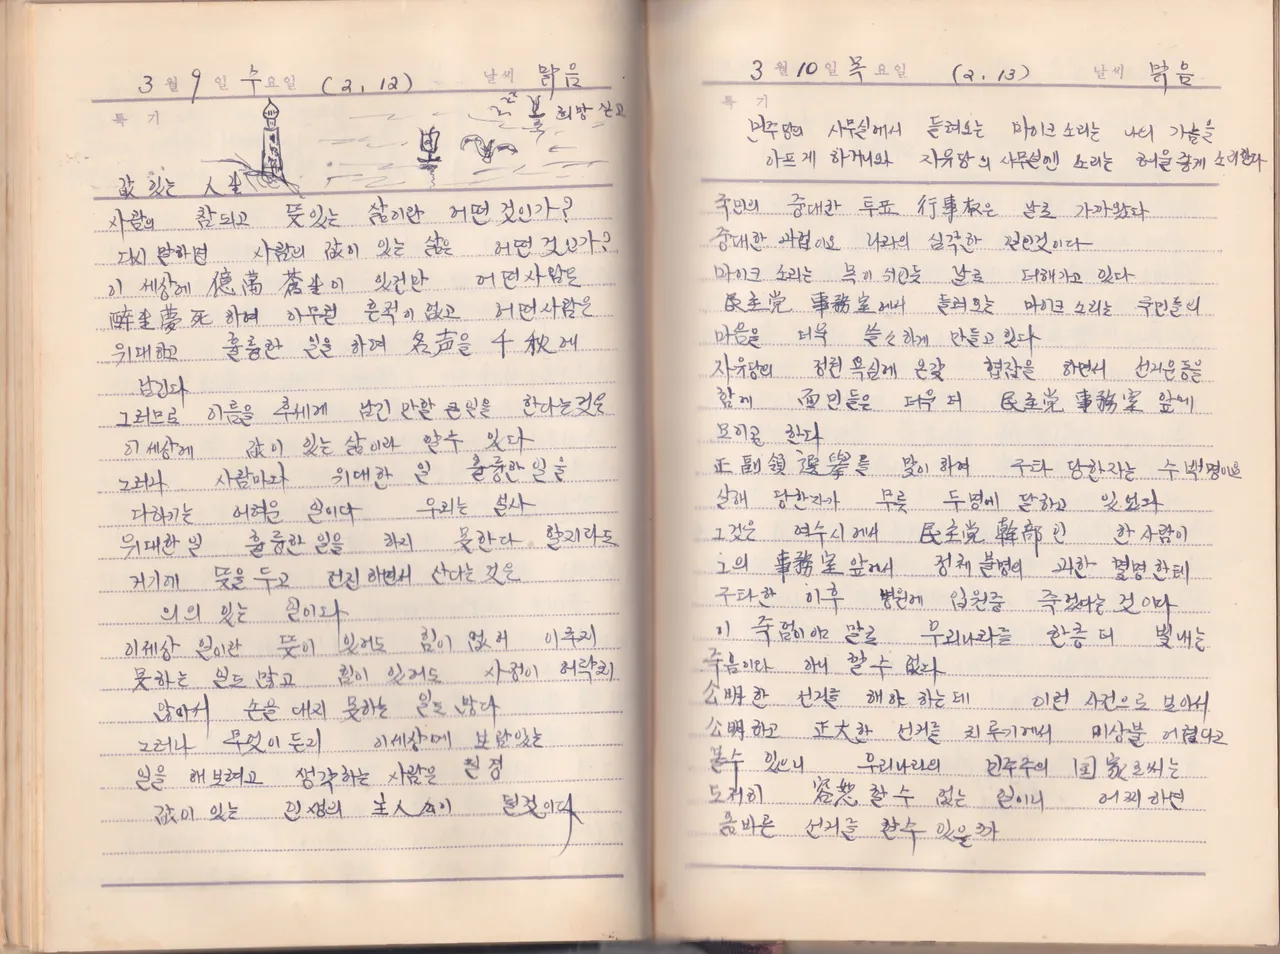 3월 9일 수요일 (2, 12) 날씨 맑음
특기
봄 희망 싣고
값 있는 人生
사람의 참되고 뜻있는 삶이란 어떤 것인가?
다시 말하면 사람의 값이 있는 삶은 어떤 것인가?
이 세상에 億萬 蒼生이 있건만 어떤 사람은
醉生夢死 하여 아무런 흔적이 없고 어떤 사람은
위대하고 훌륭한 일을 하여 名声을 千秋에
남긴다
그러므로 이름을 후세에 남긴 만할 큰 일을 한다는 것은
이 세상에 값이 있는 삶이라 할 수 있다
그러나 사람마다 위대한 일 훌륭한 일을
다하기는 어려운 일이다 우리는 설사
위대한 일 훌륭한 일을 하지 못한다 할지라도
거기에 뜻을 두고 전진 하면서 산다는 것은
의의 있는 일이다
이 세상 일이란 뜻이 있어도 힘이 없어 이루지
못하는 일도 많고 힘이 있어도 사정이 허락지
않아서 손을 대지 못하는 일도 많다
그러나 무엇이든지 이 세상에 보람있는
일을 해 보려고 생각하는 사람은
값이 있는 인생의 主人公이 될것이다
3월 10일 목요일 (2, 13) 날씨 맑음
특기
민주당의 사무실에서 들려오는 마이크 소리는 나의 가슴을
아프게 하거니와 자유당의 사무실엔 소리는
국민의 중대한 투표 行事 은 날로 가까왔다
중대한 과업이요 나라의 심각한 것이다
마이크 소리는 목이 쉬인듯 날로 더해가고 있다
民主党 事務室에서 들려오는 마이크 소리는 국민들의
마음을 더욱 쓸쓸하게 만들고 있다
자유당의 정권 욕심에 온갖 협잡을 하면서 선거운동을
함께 面민들은 더욱 더 民主党 事務室 앞에
모이곤 한다
正副領 選挙를 맞이 하여 구타 당한자는 수백명이요
살해 당한자가 무릇 두명에 달하고 있었다
그것은 여수시에서 民主党 幹部인 한 사람이
그의 事務室 앞에서 정체 불명의 괴한 몇명한테
구타한 이후 병원에 입원중 죽었다는 것이다
이 죽엄이야 말로 우리나라를 한층 더 빛내는
죽음이다 아니 할 수 없다
公明한 선거를 해야 하는데 이런 사건으로 보아서
公明하고 正大한 선거를 치루기에서 미상불 어렵다고
볼수 있으니 우리나라의 민주주의 国家로써는
도저히 容恕 할 수 없는 일이니 어찌 하면
올바른 선거를 할수 있을까